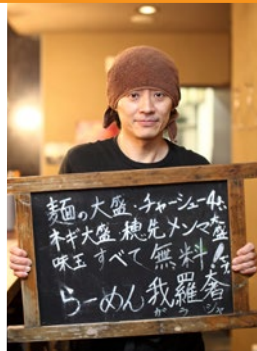 麺の大盛・チャーシュー4枚
ネギ大盛 穂先メンマ大盛
味玉 すべて無料
らーめん我羅奢
がらシャ